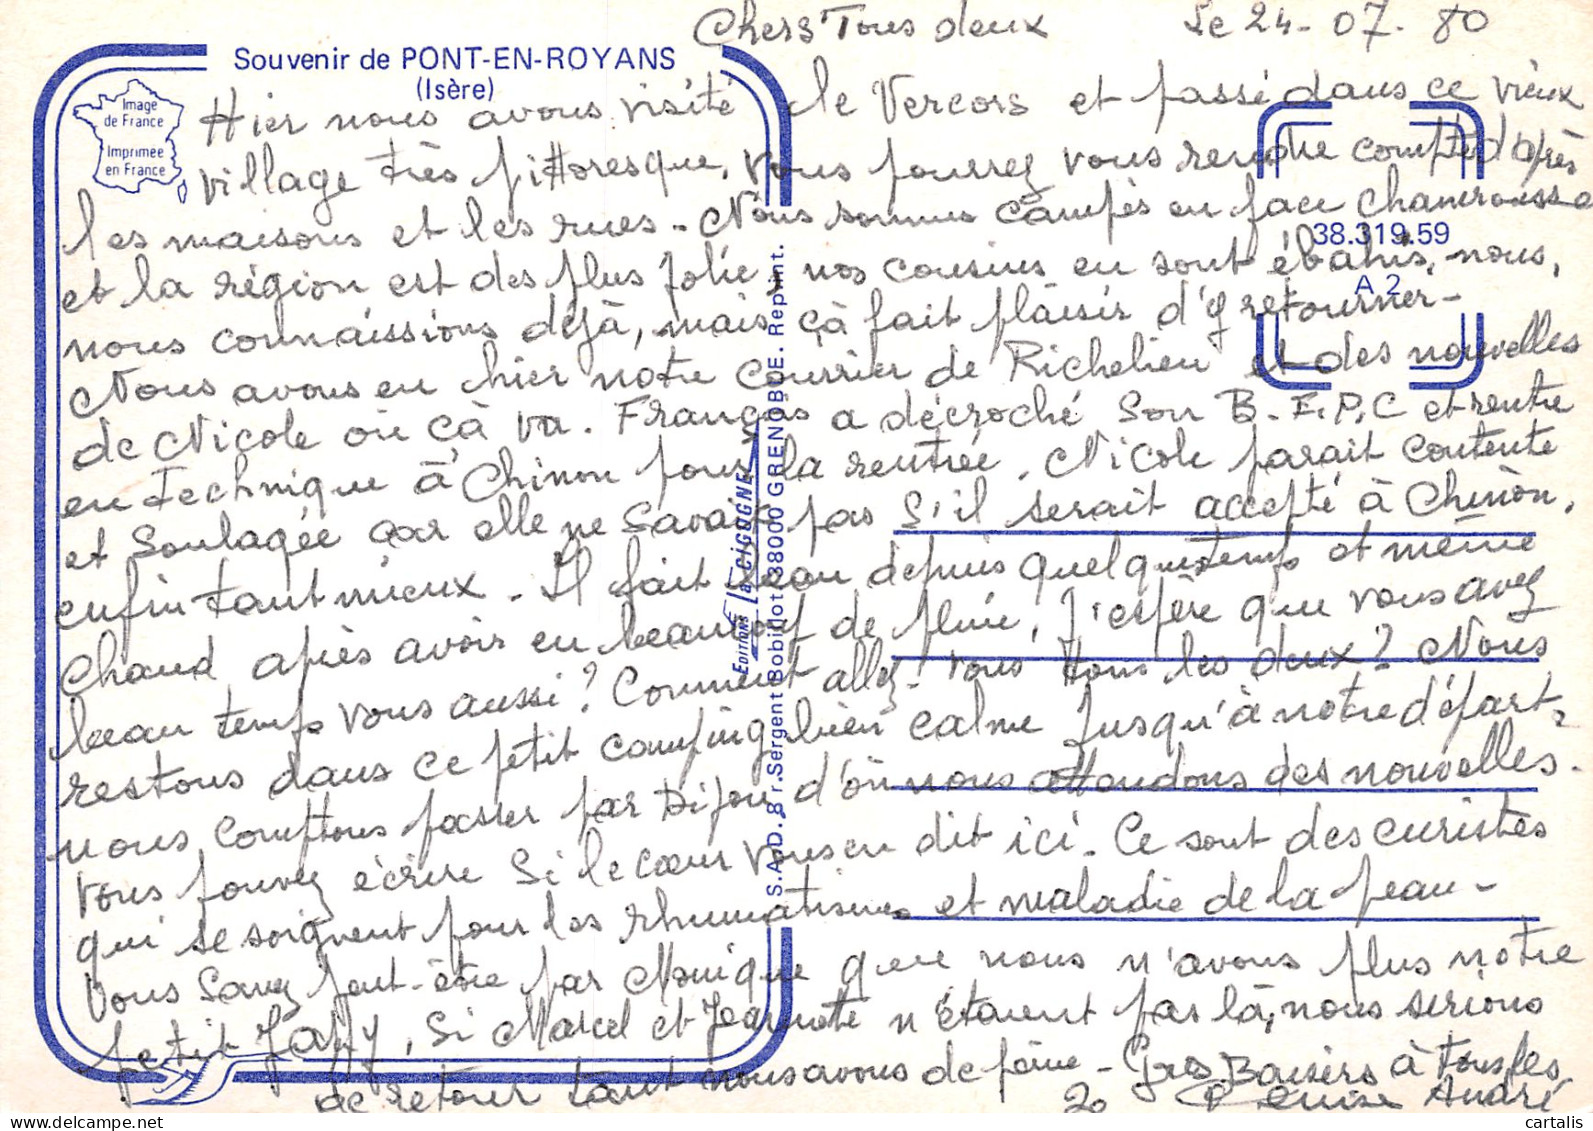 Chers Tous deux Le 24-07-80
Souvenir de PONT-EN-ROYANS
(Isère)
Image
de France
Imprimée
en France
Hier nous avons visité le Vercors et passé dans ce vieux
village très pittoresque, vous pourrez vous rendre compte d'après
les maisons et les rues. Nous sommes campés en face Chamrousse
et la région est des plus jolie, nos cousins en sont ébahis, nous,
nous connaissions déjà, mais çà fait plaisir d'y retourner-
Nous avons eu hier notre courrier de Richelieu et des nouvelles
de Nicole où çà va. François a décroché son B.E.P.C et rentre
en technique à Chinon pour la rentrée. Nicole parait contente
et soulagée car elle ne savait pas s'il serait accepté à Chinon,
enfin tant mieux. Il fait beau depuis quelques temps et même
chaud après avoir eu beaucoup de pluie, J'espère que vous avez
beau temps vous aussi? Comment allez-vous tous les deux? Nous
restons dans ce petit camping bien calme jusqu'à notre départ,
nous comptons passer par Dijon d'où nous attendons des nouvelles.
Vous pouvez écrire si le cœur vous en dit ici. Ce sont des curistes
qui se soignent pour les rhumatismes et maladie de la peau-
Vous savez peut-être par Monique que nous n'avons plus notre
petit Jafy, si Marcel et Jeannote n'étaient pas là, nous serions
de retour tant nous avons de peine - Gros Baisers à tous les
2 Denise André
38.319.59
A 2
EDITIONS La CIGOGNE
S.A.D. 8 r. Sergent Bobillot 38000 GRENOBLE. Reprint.
cartalis